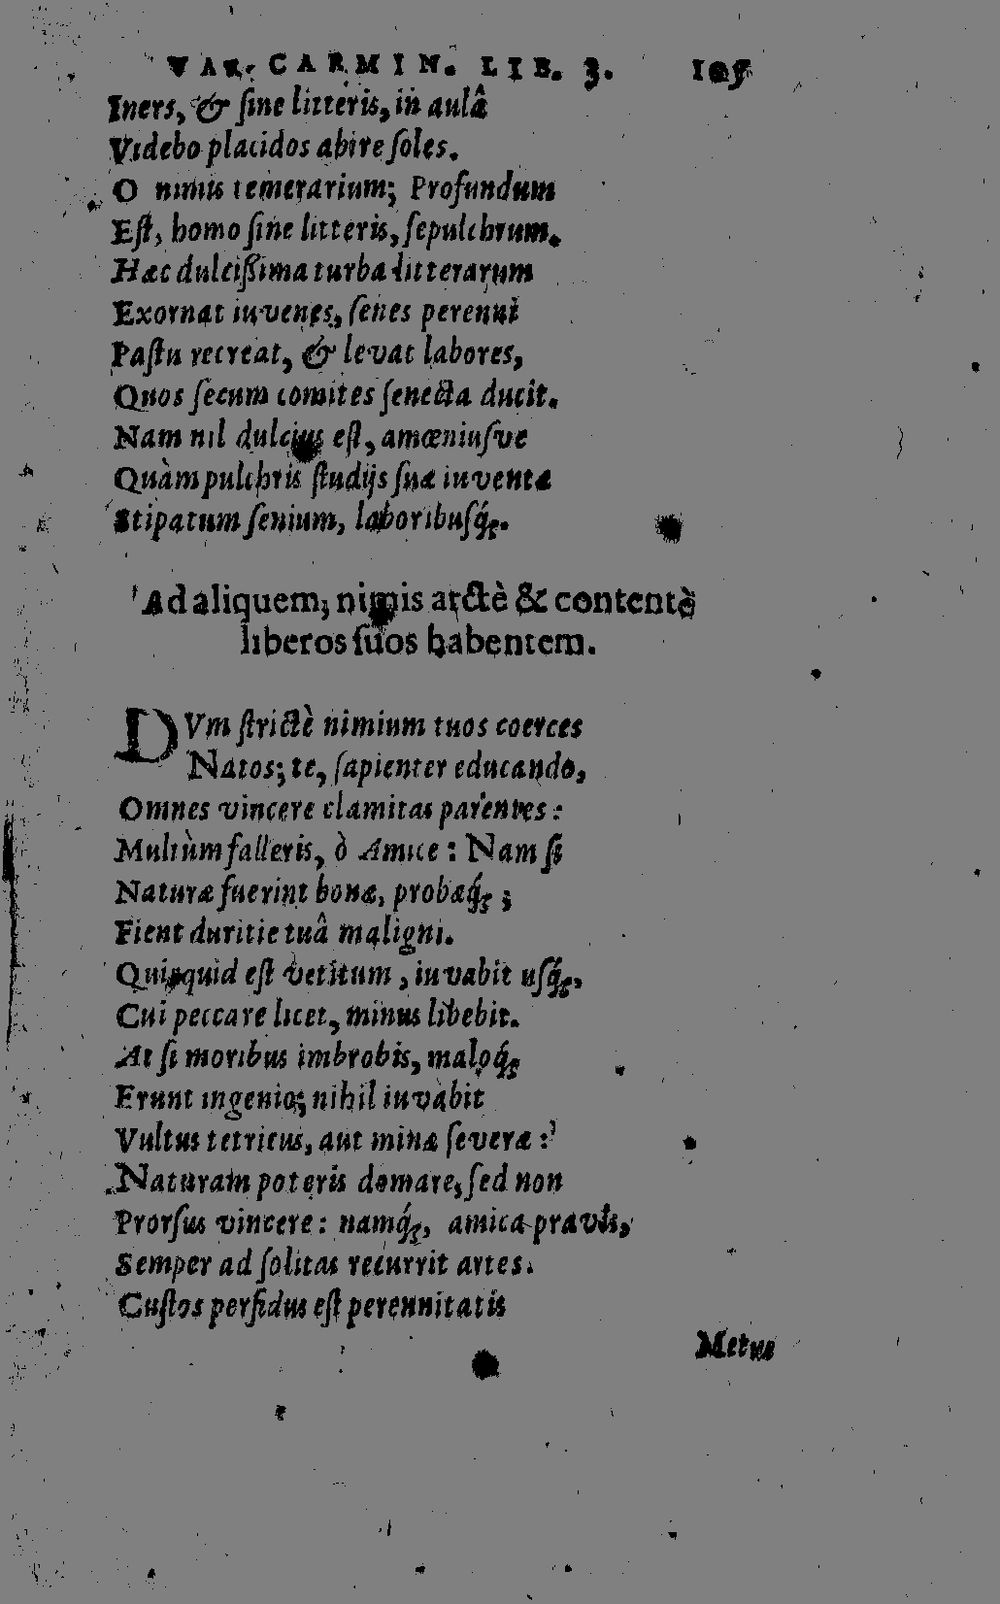 VAR. CARMIN. LIB. 3. 105
Iners, & ſine litteris, in aulâ
Videbo placidos abire ſoles.
O nimis temerarium; Profundum
Eſt, homo ſine litteris, ſepulchrum.
Hæc dulciſſima turba litterarum
Exornat iuvenes, ſenes perenni
Paſtu recreat, & levat labores,
Quos ſecum comites ſenecta ducit.
Nam nil dulcius eſt, amœniuſve
Quàm pulchris ſtudijs ſuæ iuventæ
Stipatum ſenium, laboribuſq́;.
Ad aliquem, nimis arctè & contentè
liberos ſuos habentem.
DVm ſtrictè nimium tuos coerces
Natos; te, ſapienter educando,
Omnes vincere clamitas parentes:
Multùm falleris, ò Amice: Nam ſi
Naturæ fuerint bonæ, probæq́;;
Fient duritie tuâ maligni.
Quicquid eſt vetitum, iuvabit uſq́;,
Cui peccare licet, minus libebit.
At ſi moribus imbrobis, maloq́;
Erunt ingenio; nihil iuvabit
Vultus tetricus, aut minæ ſeveræ:
Naturam poteris domare, ſed non
Prorſus vincere: namq́;, amica pravis,
Semper ad ſolitas recurrit artes.
Cuſtos perfidus eſt perennitatis
Metus